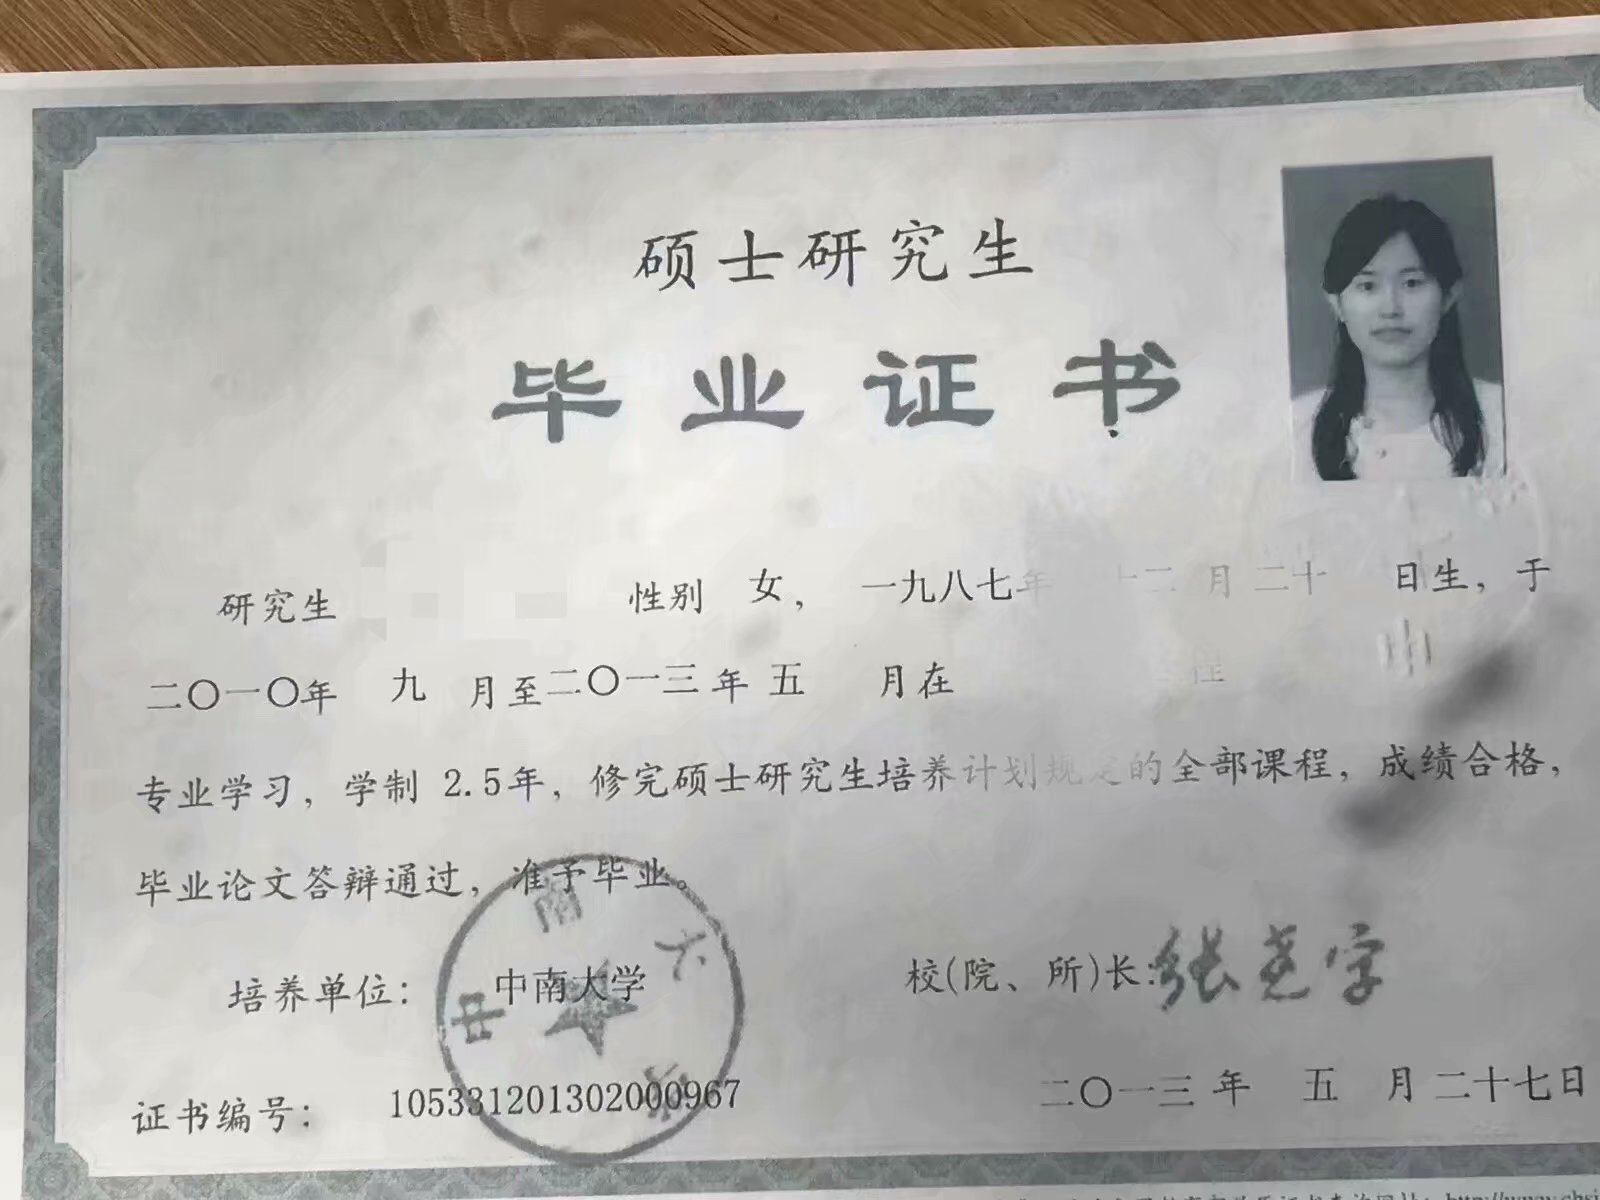 硕士研究生
毕业证书
研究生 性别 女， 一九八七年 十二 月 二十 日生，于
二〇一〇年 九 月至二〇一三年 五 月在 程
专业学习，学制 2.5年，修完硕士研究生培养计划规定的全部课程，成绩合格，
毕业论文答辩通过，准予毕业。
培养单位： 中南大学
校(院、所)长: 张尧学
中南大学
证书编号： 105331201302000967
二〇一三年 五 月二十七日